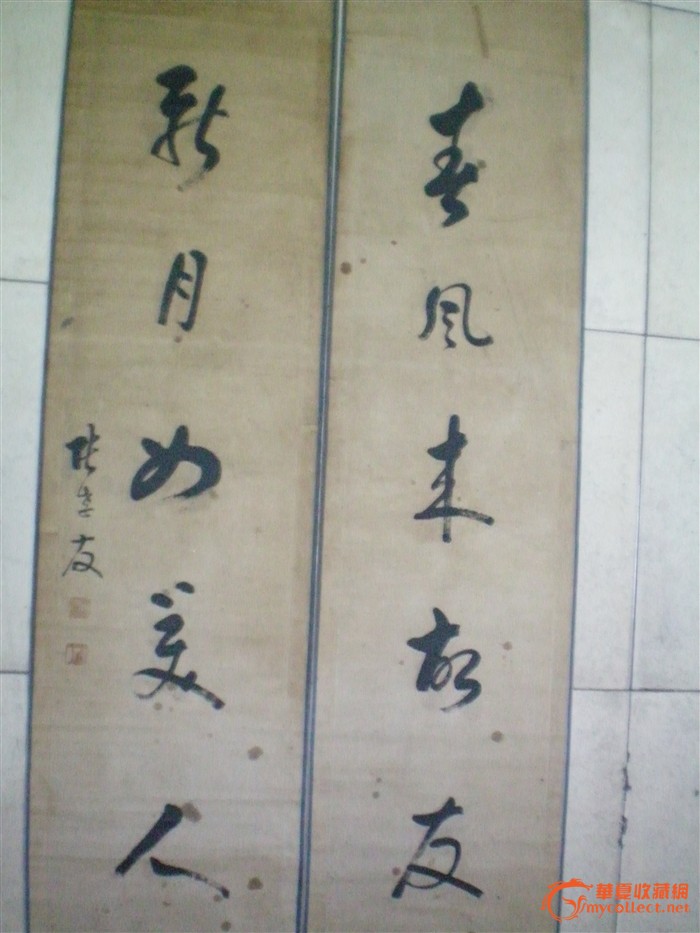 春風来故友
新月如美人
張孝友
華夏收藏網
mycollect.net